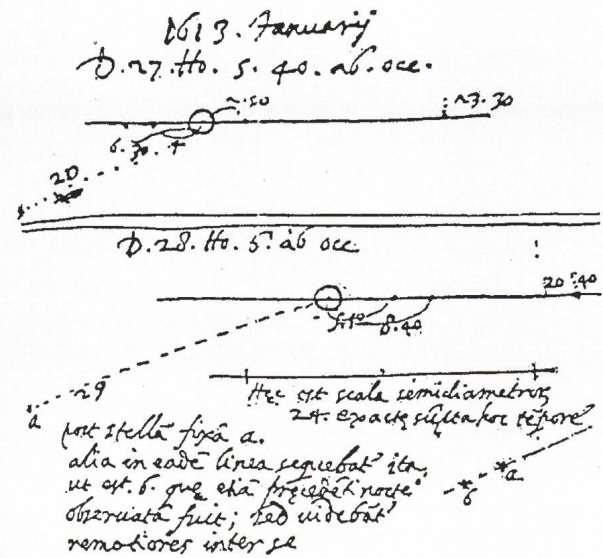 1613. Januarij
D. 27. Ho. 5. 40. ab. occ.
6.30. 4
20
D. 28. Ho. 5. ab occ
20 40
5.10 8.40
29
a
Hec est scala semidiametrorum
24. exacte sũpta hoc tẽpore
post stellã fixã a.
alia in eadẽ linea sequebat ita
ut est. b. que etiã precedẽti nocte
observata fuit; sed videbãt
remotiores inter se
a
b